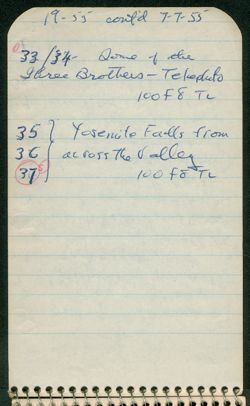 19-55 cont'd 7-7-55
33/34- Some of the
Three Brothers - Telephoto
100 f 8 TL
35 Yosemite Falls from
36 across the Valley
37 100 f 8 TL